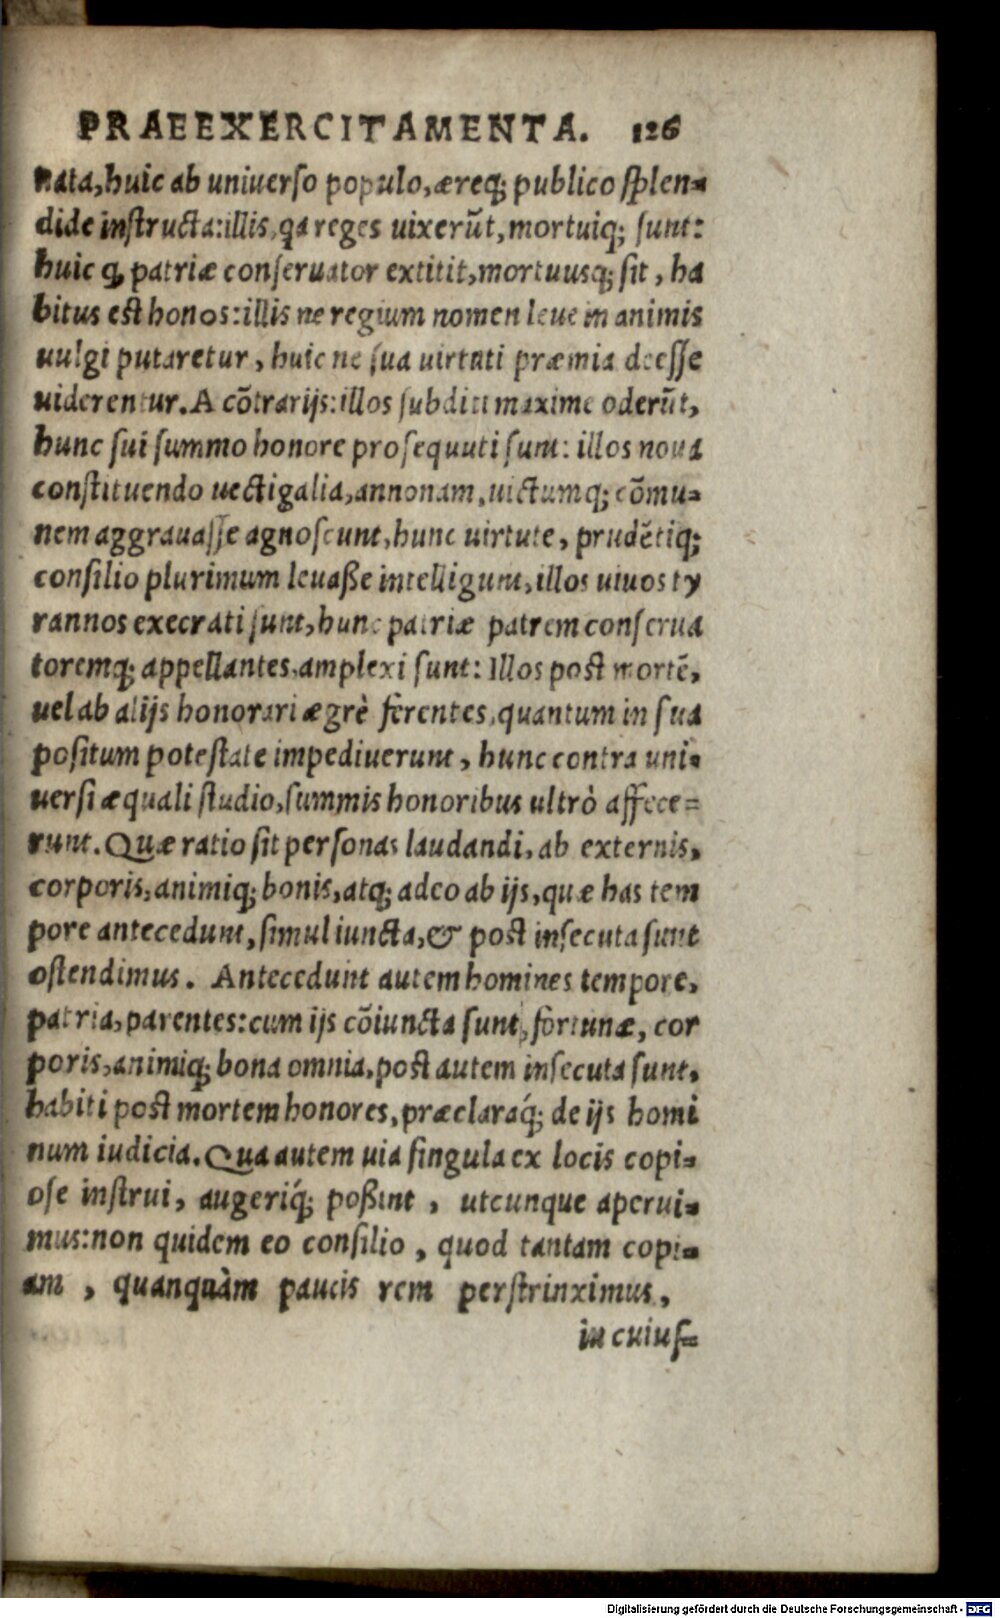 PRAEEXERCITAMENTA. 126
nata, huic ab uniuerso populo, æreq; publico splen-
dide instructa: illis, qa reges uixerũt, mortuiq; sunt:
huic q, patriæ conseruator extitit, mortuusq; sit, ha
bitus est honos: illis ne regium nomen leue in animis
uulgi putaretur, huic ne sua uirtuti præmia deesse
uiderentur. A cõtrarijs: illos subditi maxime oderũt,
hunc sui summo honore prosequuti sunt: illos noua
constituendo uectigalia, annonam, uictumq; cõmu-
nem aggrauasse agnoscunt, hunc uirtute, prudẽtiq;
consilio plurimum leuaße intelligunt, illos uiuos ty
rannos execrati sunt, hunc patriæ patrem conserua
toremq; appellantes, amplexi sunt: Illos post mortẽ,
uel ab alijs honorari ægrè ferentes, quantum in sua
positum potestate impediuerunt, hunc contra uni-
uersi æquali studio, summis honoribus ultrò affece-
runt. Quæ ratio sit personas laudandi, ab externis,
corporis, animiq; bonis, atq; adeo ab ijs, quæ has tem
pore antecedunt, simul iuncta, & post insecuta sunt
ostendimus. Antecedunt autem homines tempore,
patria, parentes: cum ijs cõiuncta sunt, fortunæ, cor
poris, animiq; bona omnia, post autem insecuta sunt,
habiti post mortem honores, præclaraq́; de ijs homi
num iudicia. Qua autem uia singula ex locis copi-
ose instrui, augeriq́; poßint, utcunque aperui-
mus: non quidem eo consilio, quod tantam copi-
am, quanquàm paucis rem perstrinximus,
in cuius-
Digitalisierung gefördert durch die Deutsche Forschungsgemeinschaft - DFG